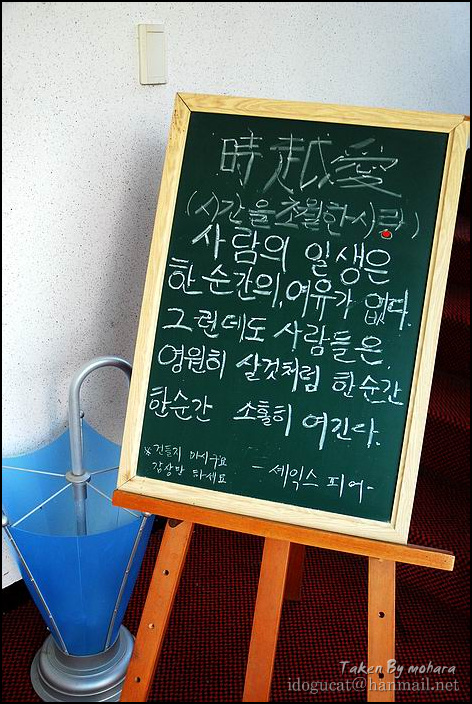 時越愛
(시간을초월한사랑)
사람의 일생은
한순간의, 여유가 없다.
그런데도 사람들은,
영원히 살것처럼 한순간
한순간 소홀히 여긴다.
※건들지 마시구요
감상만 하세요
-세익스 피어-
Taken By mohara
idogucat@hanmail.net